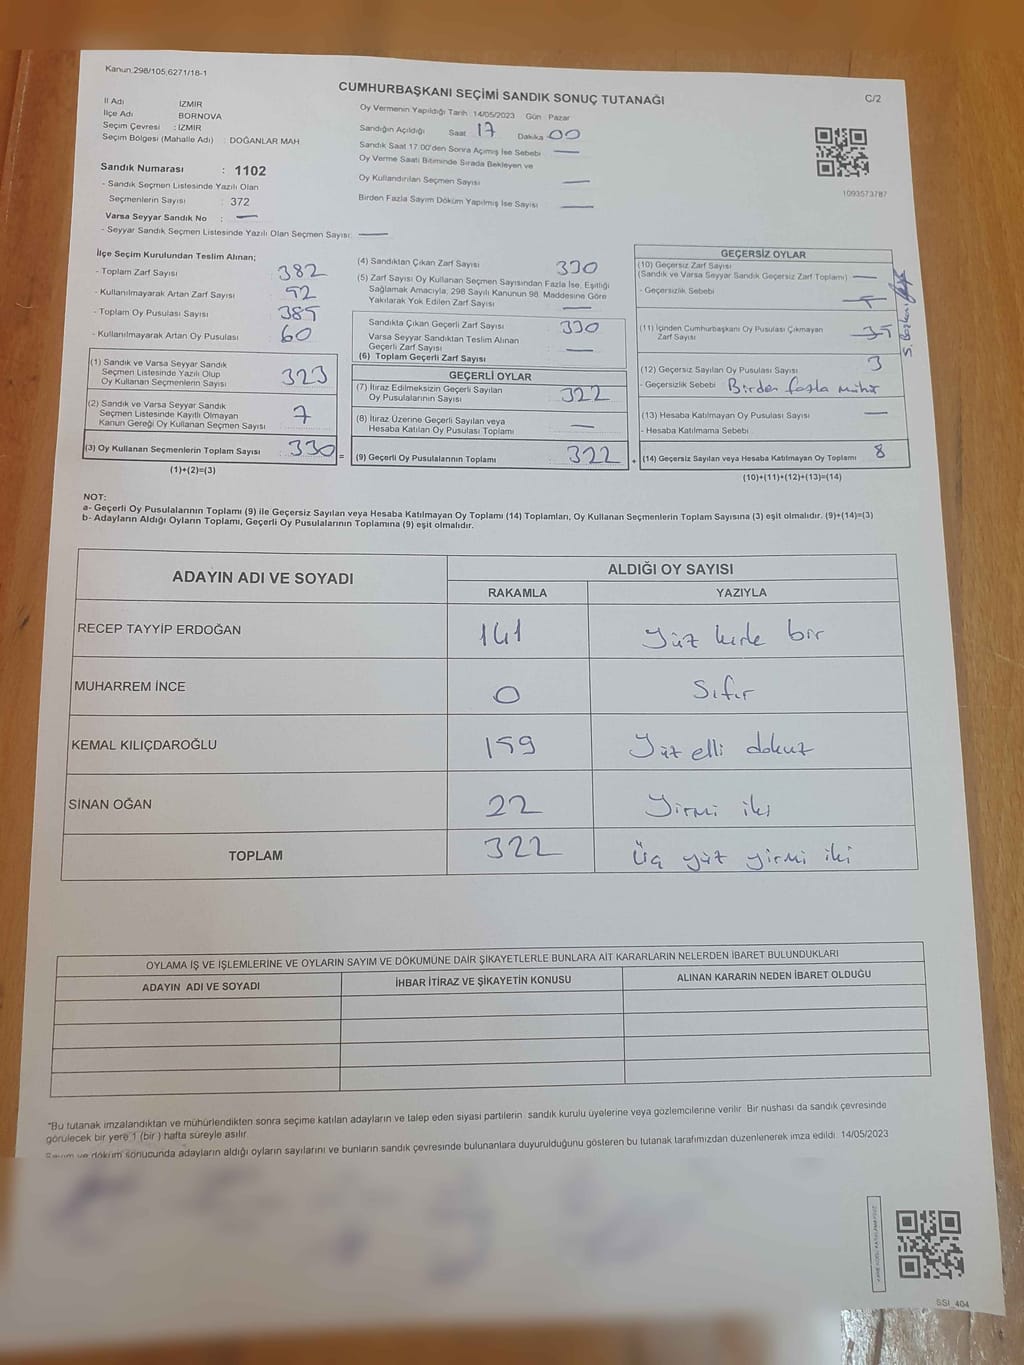 Kanun:298/105,6271/18-1
CUMHURBAŞKANI SEÇİMİ SANDIK SONUÇ TUTANAĞI
C/2
İl Adı : İZMİR
İlçe Adı BORNOVA
Seçim Çevresi : İZMİR
Seçim Bölgesi (Mahalle Adı) : DOĞANLAR MAH
Sandık Numarası : 1102
- Sandık Seçmen Listesinde Yazılı Olan
Seçmenlerin Sayısı : 372
Varsa Seyyar Sandık No : —
- Seyyar Sandık Seçmen Listesinde Yazılı Olan Seçmen Sayısı: —
Oy Vermenin Yapıldığı Tarih :14/05/2023 Gün : Pazar
Sandığın Açıldığı Saat 17 Dakika 00
Sandık Saat 17:00'den Sonra Açılmış İse Sebebi —
Oy Verme Saati Bitiminde Sırada Bekleyen ve
Oy Kullandırılan Seçmen Sayısı —
Birden Fazla Sayım Döküm Yapılmış İse Sayısı —
1093573787
İlçe Seçim Kurulundan Teslim Alınan;
- Toplam Zarf Sayısı 382
- Kullanılmayarak Artan Zarf Sayısı 52
- Toplam Oy Pusulası Sayısı 385
- Kullanılmayarak Artan Oy Pusulası 60
(1) Sandık ve Varsa Seyyar Sandık
Seçmen Listesinde Yazılı Olup
Oy Kullanan Seçmenlerin Sayısı 323
(2) Sandık ve Varsa Seyyar Sandık
Seçmen Listesinde Kayıtlı Olmayan
Kanun Gereği Oy Kullanan Seçmen Sayısı 7
(3) Oy Kullanan Seçmenlerin Toplam Sayısı 330 =
(1)+(2)=(3)
(4) Sandıktan Çıkan Zarf Sayısı 330
(5) Zarf Sayısı Oy Kullanan Seçmen Sayısından Fazla İse, Eşitliği
Sağlamak Amacıyla, 298 Sayılı Kanunun 98. Maddesine Göre
Yakılarak Yok Edilen Zarf Sayısı —
Sandıkta Çıkan Geçerli Zarf Sayısı 330
Varsa Seyyar Sandıktan Teslim Alınan
Geçerli Zarf Sayısı —
(6) Toplam Geçerli Zarf Sayısı
GEÇERLİ OYLAR
(7) İtiraz Edilmeksizin Geçerli Sayılan
Oy Pusulalarının Sayısı 322
(8) İtiraz Üzerine Geçerli Sayılan veya
Hesaba Katılan Oy Pusulası Toplamı —
(9) Geçerli Oy Pusulalarının Toplamı 322 +
GEÇERSİZ OYLAR
(10) Geçersiz Zarf Sayısı
(Sandık ve Varsa Seyyar Sandık Geçersiz Zarf Toplamı) —
- Geçersizlik Sebebi
(11) İçinden Cumhurbaşkanı Oy Pusulası Çıkmayan
Zarf Sayısı
(12) Geçersiz Sayılan Oy Pusulası Sayısı 3
- Geçersizlik Sebebi Birden fazla mühür
(13) Hesaba Katılmayan Oy Pusulası Sayısı —
- Hesaba Katılmama Sebebi
(14) Geçersiz Sayılan veya Hesaba Katılmayan Oy Toplamı 8
(10)+(11)+(12)+(13)=(14)
S. Başkanı
NOT:
a- Geçerli Oy Pusulalarının Toplamı (9) ile Geçersiz Sayılan veya Hesaba Katılmayan Oy Toplamı (14) Toplamları, Oy Kullanan Seçmenlerin Toplam Sayısına (3) eşit olmalıdır. (9)+(14)=(3)
b- Adayların Aldığı Oyların Toplamı, Geçerli Oy Pusulalarının Toplamına (9) eşit olmalıdır.
ADAYIN ADI VE SOYADI ALDIĞI OY SAYISI
RAKAMLA YAZIYLA
RECEP TAYYİP ERDOĞAN 141 Yüz kırk bir
MUHARREM İNCE 0 Sıfır
KEMAL KILIÇDAROĞLU 159 Yüz elli dokuz
SİNAN OĞAN 22 Yirmi iki
TOPLAM 322 Üç yüz yirmi iki
OYLAMA İŞ VE İŞLEMLERİNE VE OYLARIN SAYIM VE DÖKÜMÜNE DAİR ŞİKAYETLERLE BUNLARA AİT KARARLARIN NELERDEN İBARET BULUNDUKLARI
ADAYIN ADI VE SOYADI İHBAR İTİRAZ VE ŞİKAYETİN KONUSU ALINAN KARARIN NEDEN İBARET OLDUĞU
"Bu tutanak imzalandıktan ve mühürlendikten sonra seçime katılan adayların ve talep eden siyasi partilerin sandık kurulu üyelerine veya gözlemcilerine verilir. Bir nüshası da sandık çevresinde
görülecek bir yere 1 (bir ) hafta süreyle asılır.
Sayım ve döküm sonucunda adayların aldığı oyların sayılarını ve bunların sandık çevresinde bulunanlara duyurulduğunu gösteren bu tutanak tarafımızdan düzenlenerek imza edildi. 14/05/2023
SSI_404